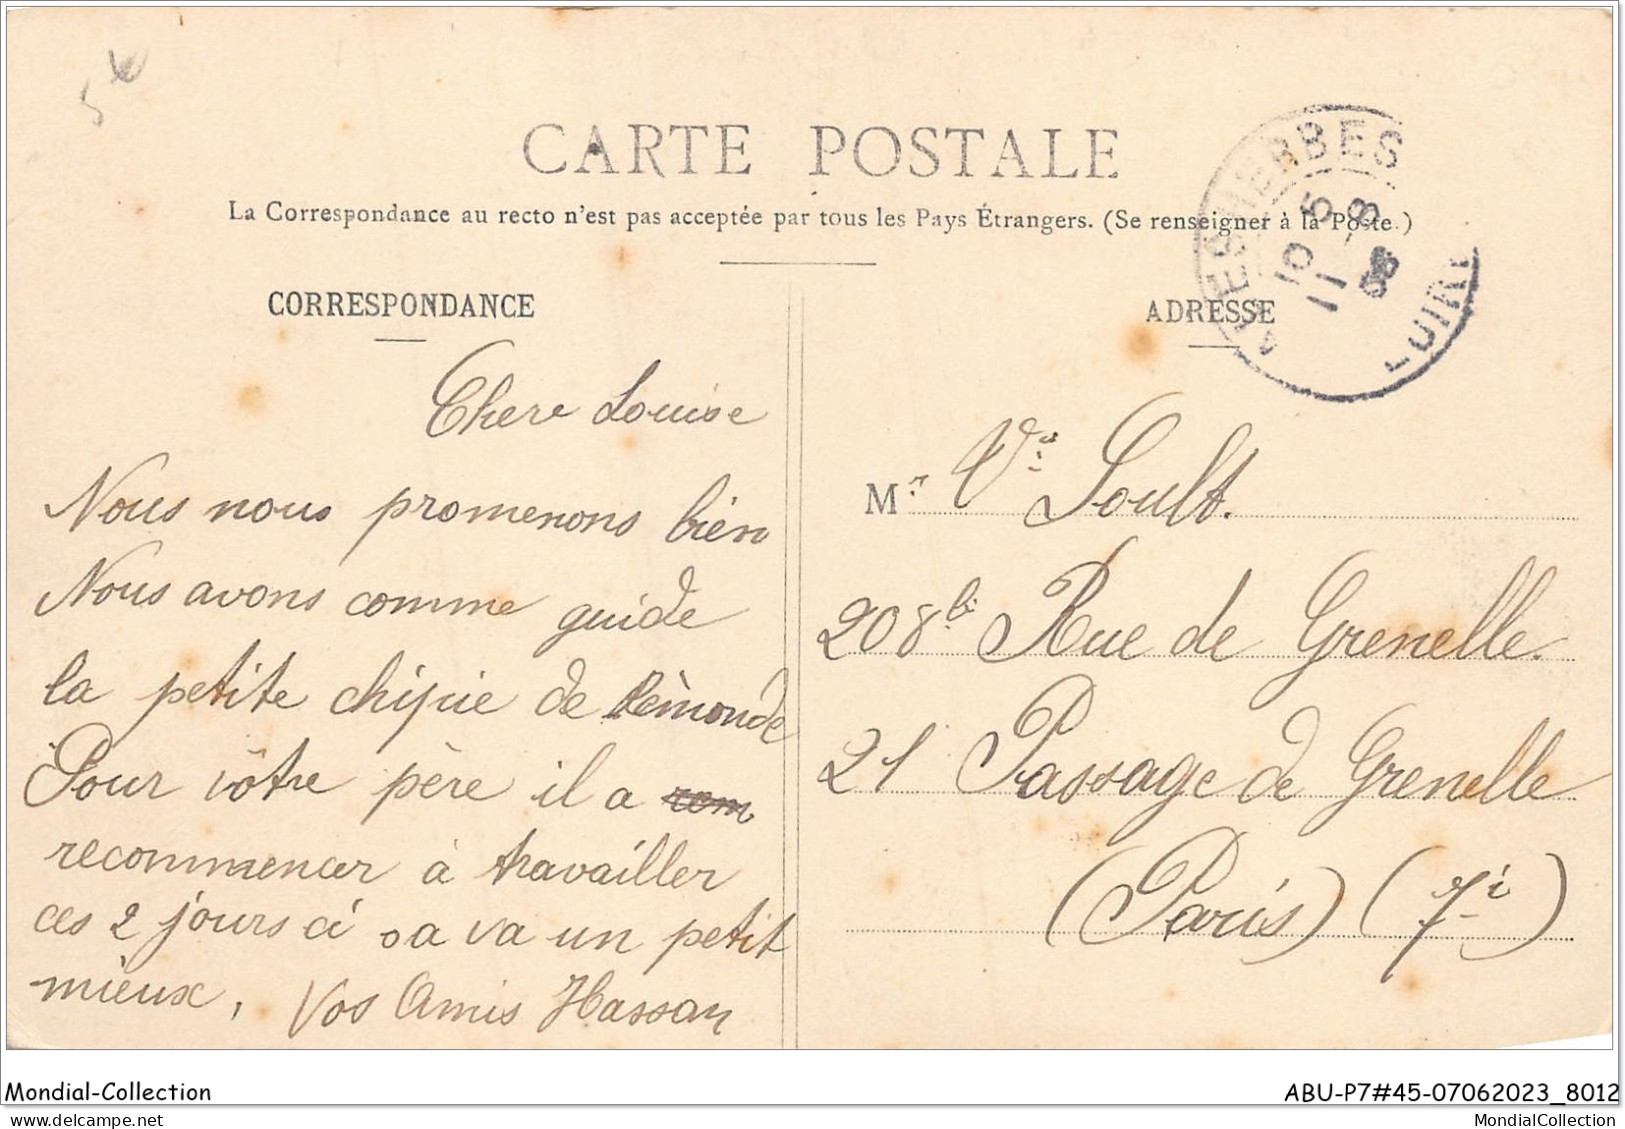 5 €
CARTE POSTALE
La Correspondance au recto n'est pas acceptée par tous les Pays Étrangers. (Se renseigner à la Poste.)
CORRESPONDANCE
Chere Louise
Nous nous promenons bien
Nous avons comme guide
la petite chipie de Rèmonde
Pour vôtre père il a rom
recommencer à travailler
ces 2 jours ci sa va un petit
mieux, Vos Amis Hassan
ADRESSE
MALESHERBES
10 5
11 -8
08
LOIRET
Mr Ve Soult.
208 bi Rue de Grenelle.
21 Passage de Grenelle
(Paris) (7i)
Mondial-Collection
ABU-P7#45-07062023_8012
MondialCollection
MondialCollection